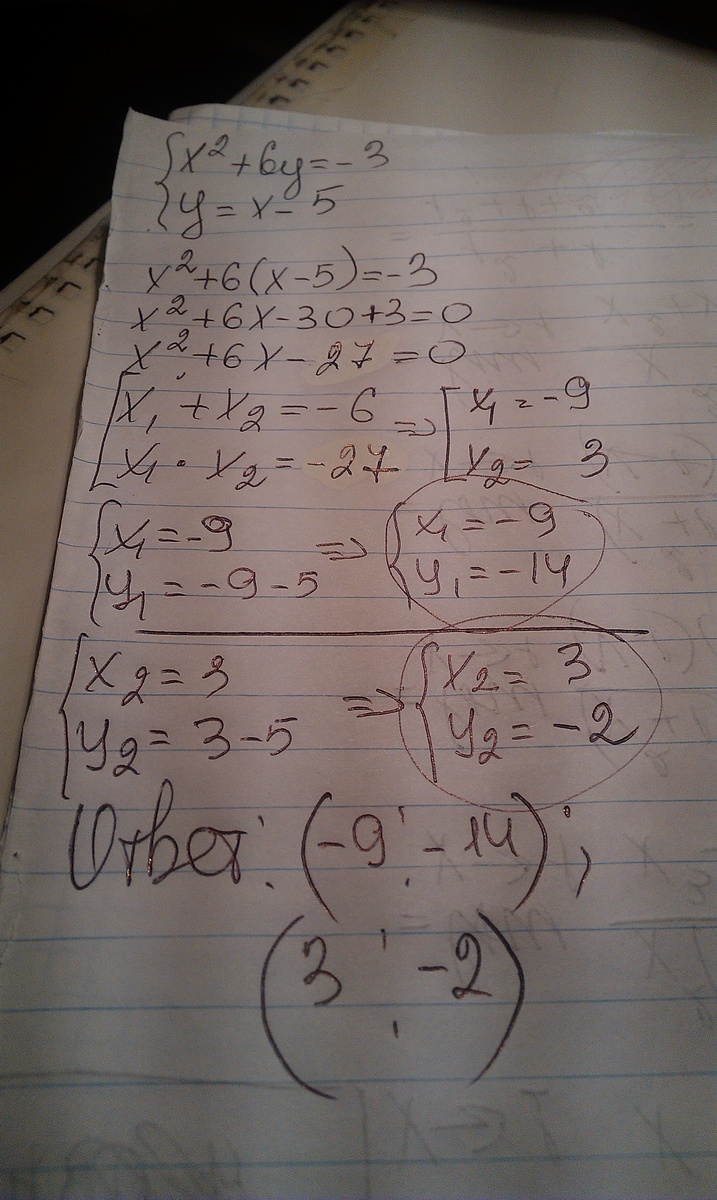 {x²+6y=-3
{y=x-5
x²+6(x-5)=-3
x²+6x-30+3=0
x²+6x-27=0
[x₁+x₂=-6 ⇒ [x₁=-9
[x₁·x₂=-27 [x₂=3
{x₁=-9 ⇒ {x₁=-9
{y₁=-9-5 {y₁=-14
{x₂=3 ⇒ {x₂=3
{y₂=3-5 {y₂=-2
Ответ: (-9; -14);
(3; -2)